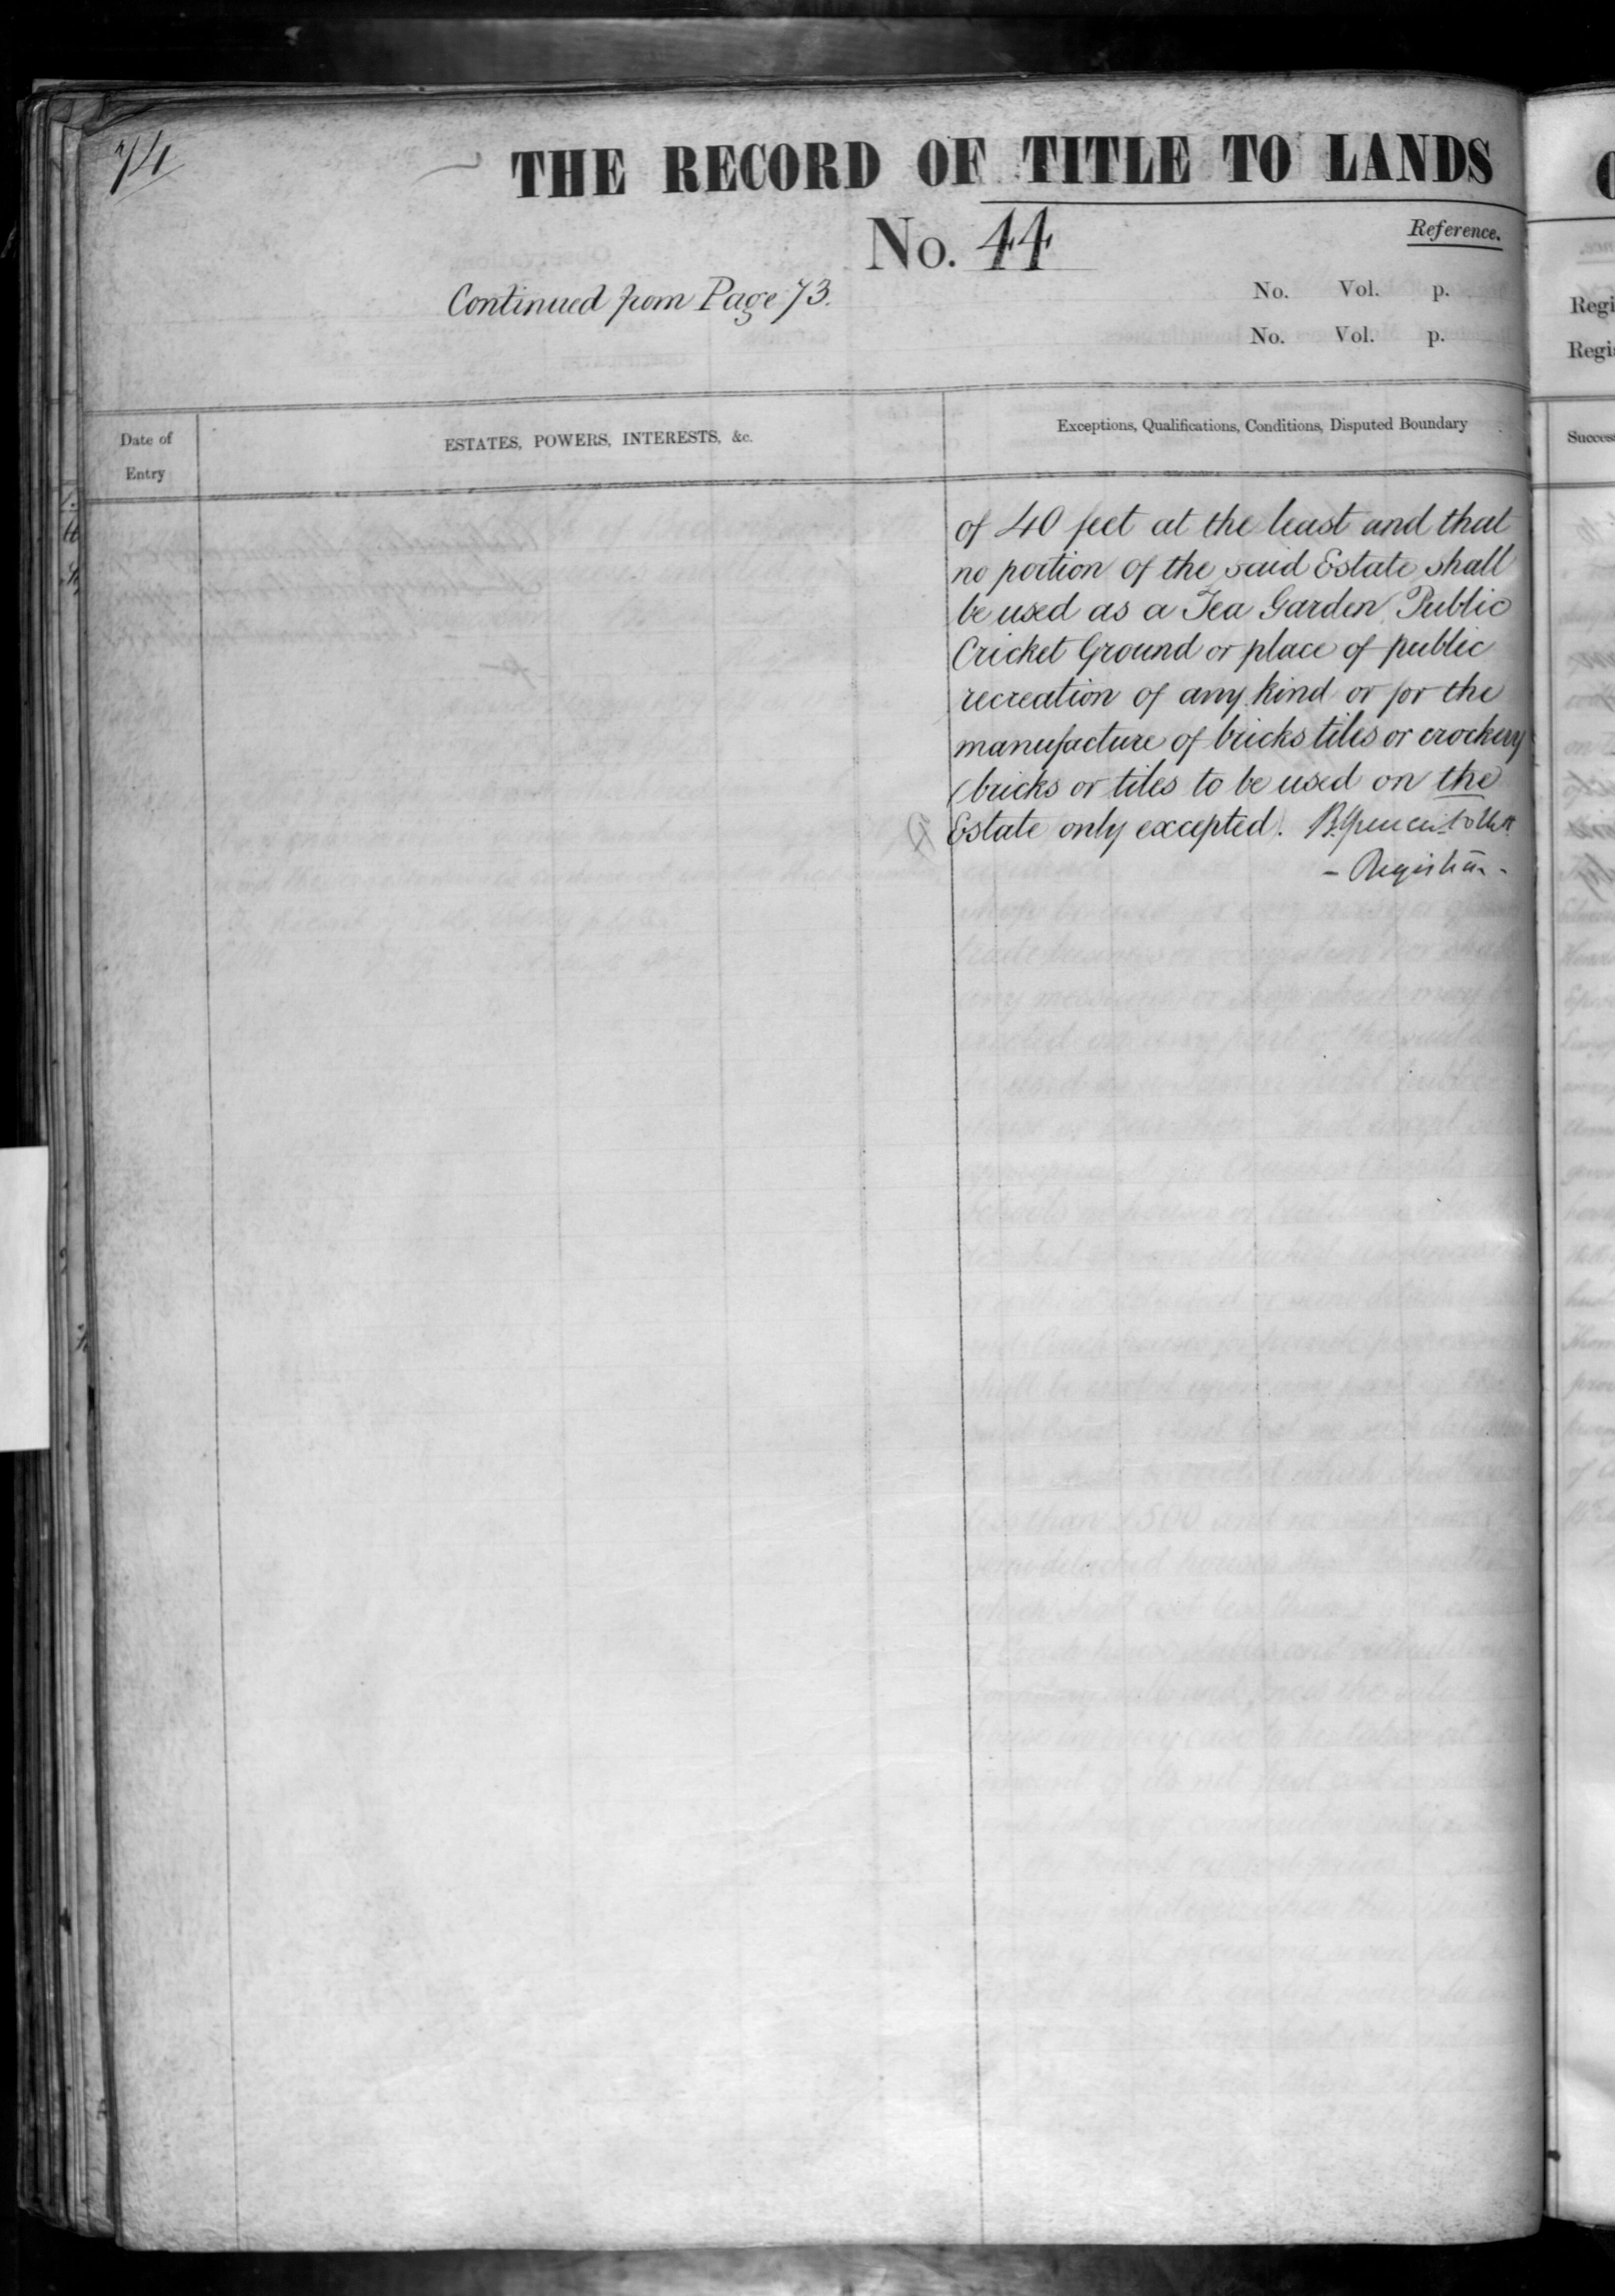 74
THE RECORD OF TITLE TO LANDS
No. 44
Reference.
Continued from Page 73.
No. Vol. p.
No. Vol. p.
Date of
Entry
ESTATES, POWERS, INTERESTS, &c.
Exceptions, Qualifications, Conditions, Disputed Boundary
of 40 feet at the least and that
no portion of the said Estate shall
be used as a Tea Garden Public
Cricket Ground or place of public
recreation of any kind or for the
manufacture of bricks tiles or crockery
(bricks or tiles to be used on the
Estate only excepted). B. Spencer Follett
- Registrar -
Regi
Regis
Success